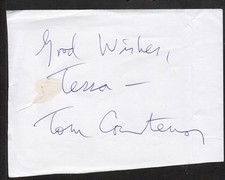 Good Wishes,
Tessa —
Tom Courtenay